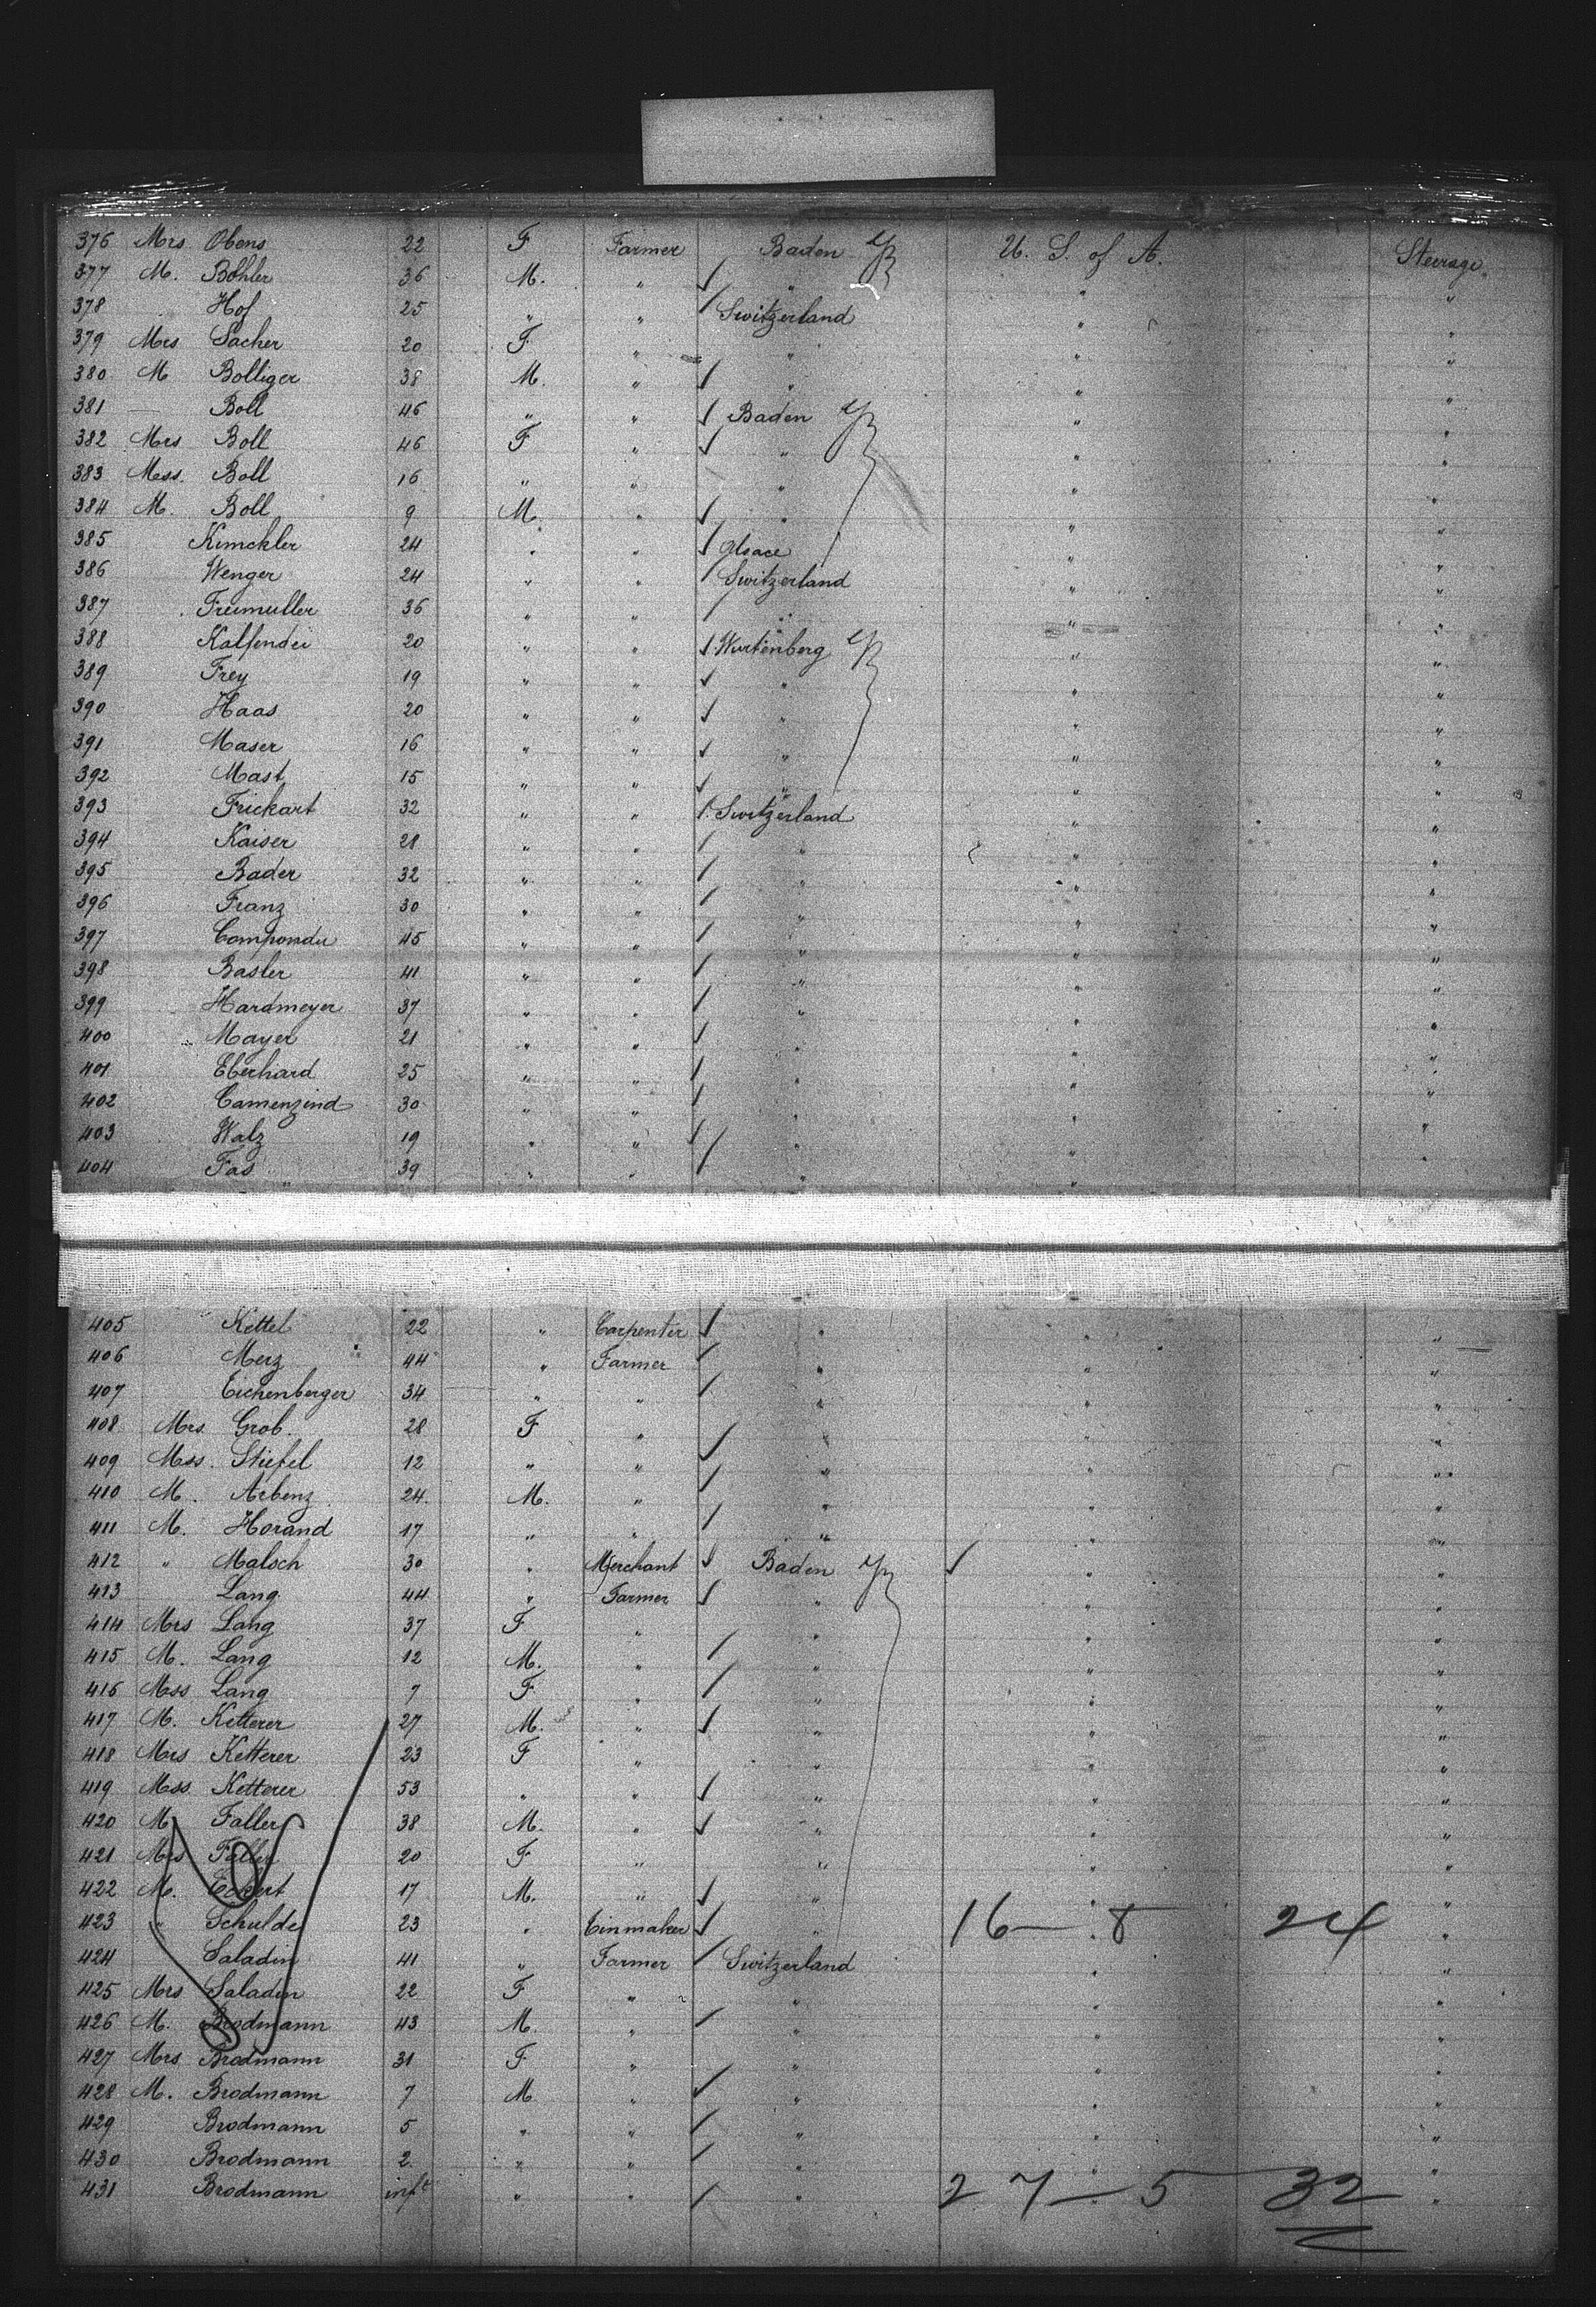 376 Mrs Obens 22 F Farmer Baden U. S. of A. Steerage
377 M. Bohler 36 M. " " " "
378 Hof 25 " " Switzerland " "
379 Mrs Sacher 20 F " " " "
380 M Bolliger 38 M. " " " "
381 — Boll 46 " " Baden " "
382 Mrs Boll 46 F " " " "
383 Mss. Boll 16 " " " " "
384 M. Boll 9 M. " " " "
385 Kimckler 24 " " Alsace " "
386 Wenger 24 " " Switzerland " "
387 Freimuller 36 " " " " "
388 20 " " Wurtenberg " "
389 Frey 19 " " " " "
390 Haas 20 " " " " "
391 Maser 16 " " " " "
392 Mast 15 " " " " "
393 Frickart 32 " " Switzerland " "
394 Kaiser 28 " " " " "
395 Bader 32 " " " " "
396 Franz 30 " " " " "
397 45 " " " " "
398 Basler 41 " " " " "
399 Hardmeyer 37 " " " " "
400 Mayer 21 " " " " "
401 Eberhard 25 " " " " "
402 Camenzind 30 " " " " "
403 Walz 19 " " " " "
404 Fas 39 " " " " "
405 Kettel 22 " Carpenter " " "
406 Merz 44 " Farmer " " "
407 Eichenberger 34 " " " " "
408 Mrs Grob. 28 F " " " "
409 Mss. Stiefel 12 " " " " "
410 M. Arbenz 24. M. " " " "
411 M. Horand 17 " " " " "
412 " Malsch 30 " Merchant Baden "
413 Lang 44 " Farmer " " "
414 Mrs Lang 37 F " " " "
415 M. Lang 12 M. " " " "
416 Mss Lang 7 F " " " "
417 M. Ketterer 27 M. " " " "
418 Mrs Ketterer 23 F " " " "
419 Mss. Ketterer 53 " " " " "
420 M Faller 38 M. " " " "
421 Mrs Faller 20 F " " " "
422 M. Eckert 17 M. " " " "
423 " Schulde 23 " Tinmaker " 16 — 8 24 "
424 Saladin 41 " Farmer Switzerland " "
425 Mrs Saladin 22 F " " " "
426 M. Brodmann 43 M. " " " "
427 Mrs Brodmann 31 F " " " "
428 M. Brodmann 7 M " " " "
429 Brodmann 5 " " " " "
430 Brodmann 2 " " " " "
431 Brodmann inft " " " 27 — 5 32 "